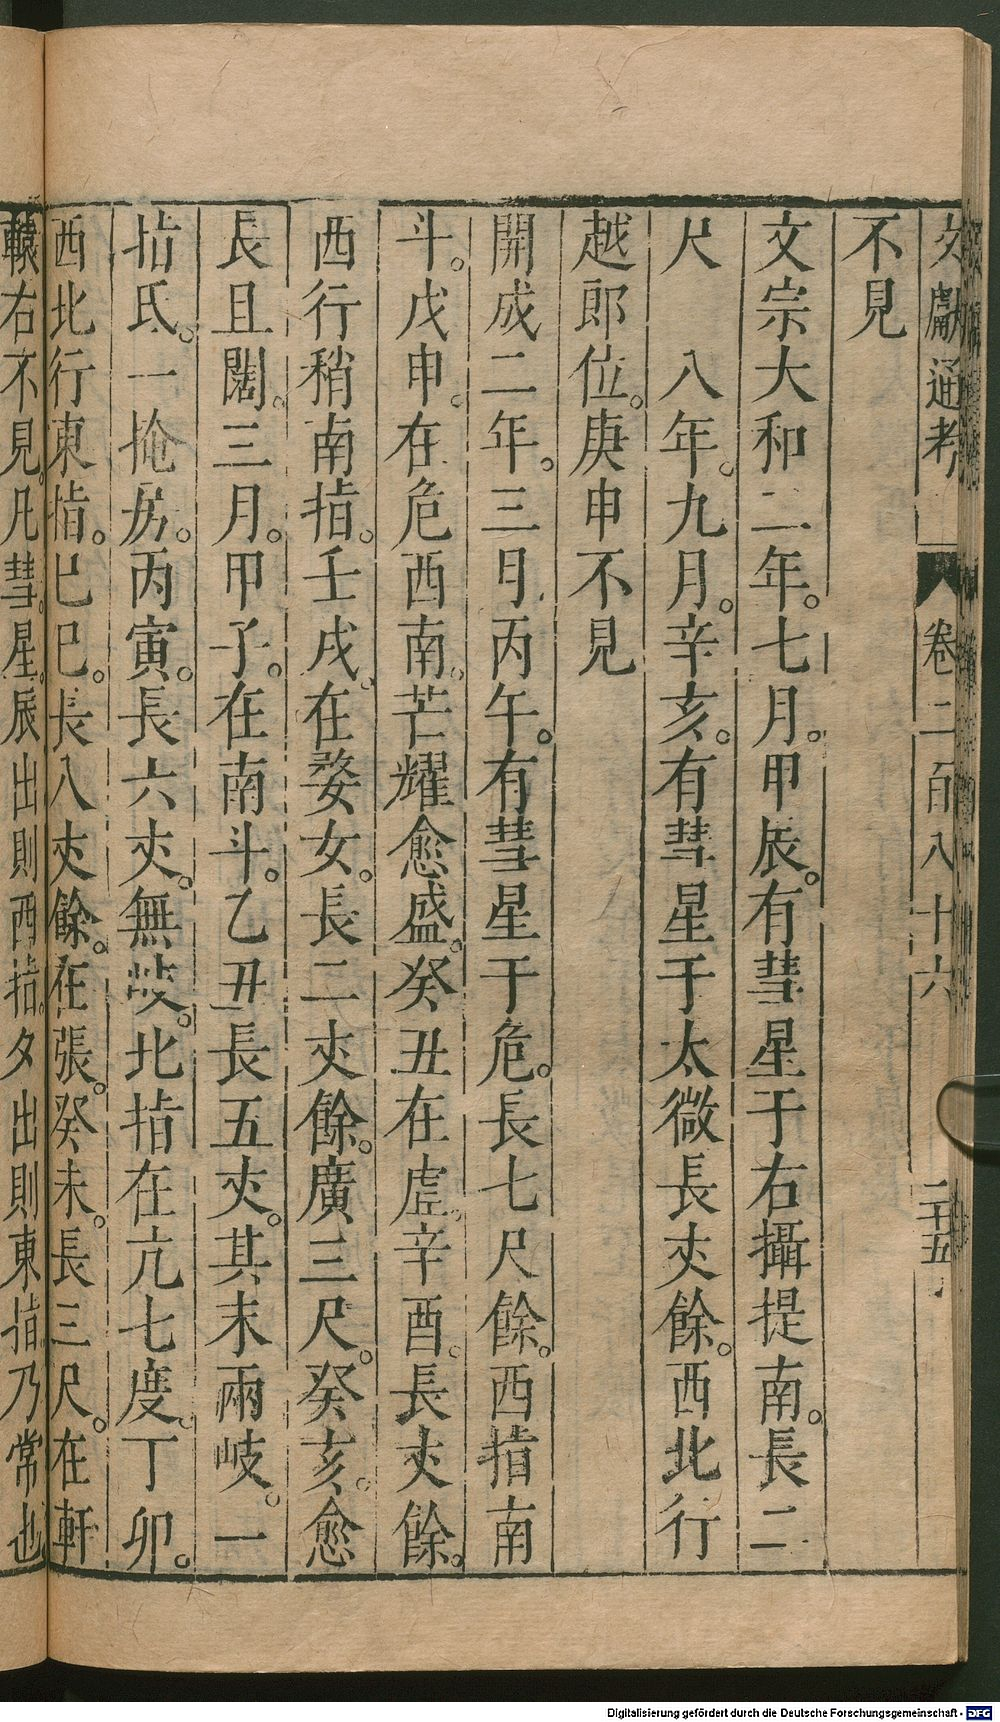 文獻通考 卷二百八十六 二十五
不見
文宗大和二年。七月。甲辰。有彗星于右攝提南。長二
尺 八年。九月。辛亥。有彗星于太微長丈餘。西北行
越郎位。庚申不見
開成二年。三月丙午。有彗星于危。長七尺餘。西指南
斗。戊申。在危西南。芒耀愈盛。癸丑在虛。辛酉。長丈餘。
西行稍南指。壬戌。在婺女。長二丈餘。廣三尺。癸亥。愈
長且闊。三月。甲子。在南斗。乙丑長五丈。其末兩岐。一
指氐。一掩房。丙寅。長六丈。無岐。北指在亢七度。丁卯。
西北行東指。巳巳。長八丈餘。在張。癸未。長三尺。在軒
轅右不見。凡彗。星。辰出則西指。夕出則東指。乃常也
Digitalisierung gefördert durch die Deutsche Forschungsgemeinschaft - DFG